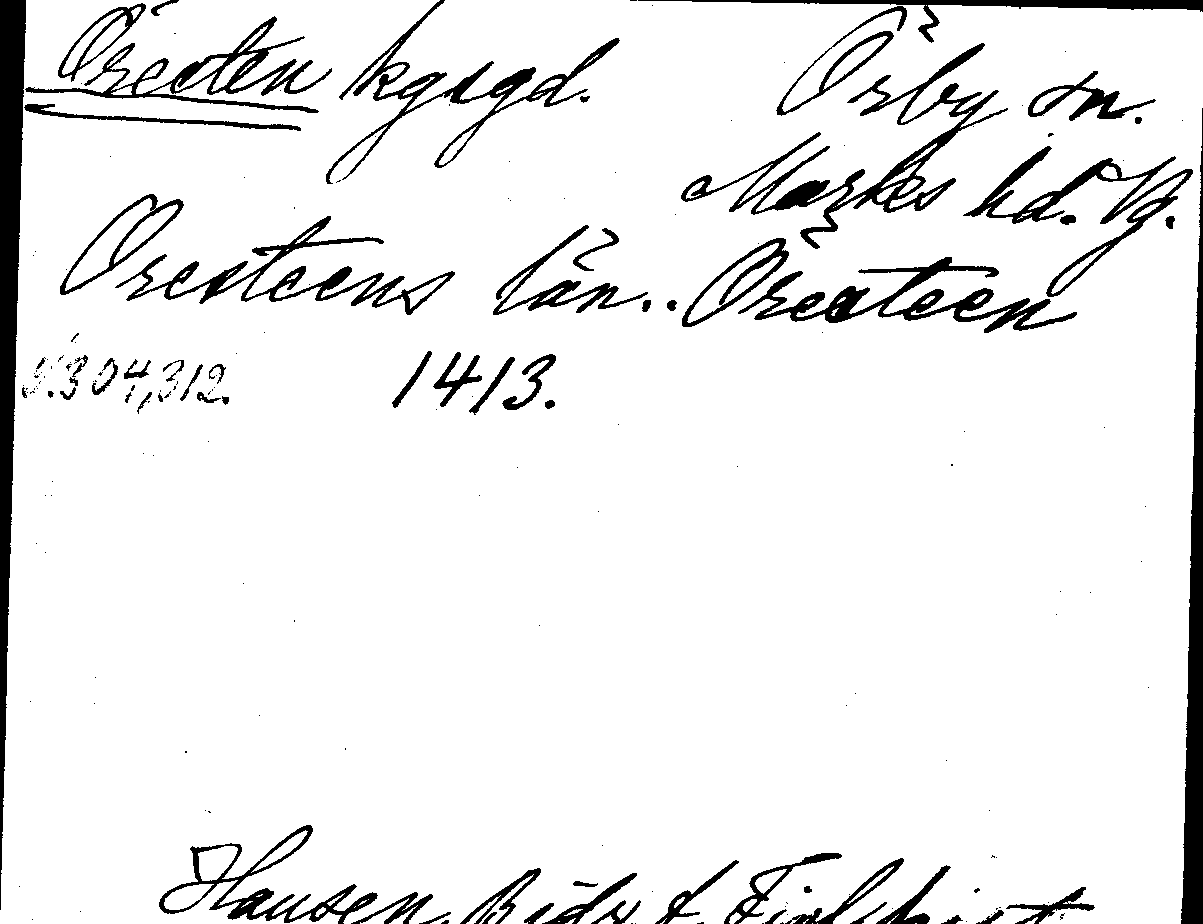 Öresten kgsgd. Örby sn.
Marks hd. Vg.
Oresteens län.. Öresteen
s. 304, 312. 1413.
Hausen, Bidr t. Finl